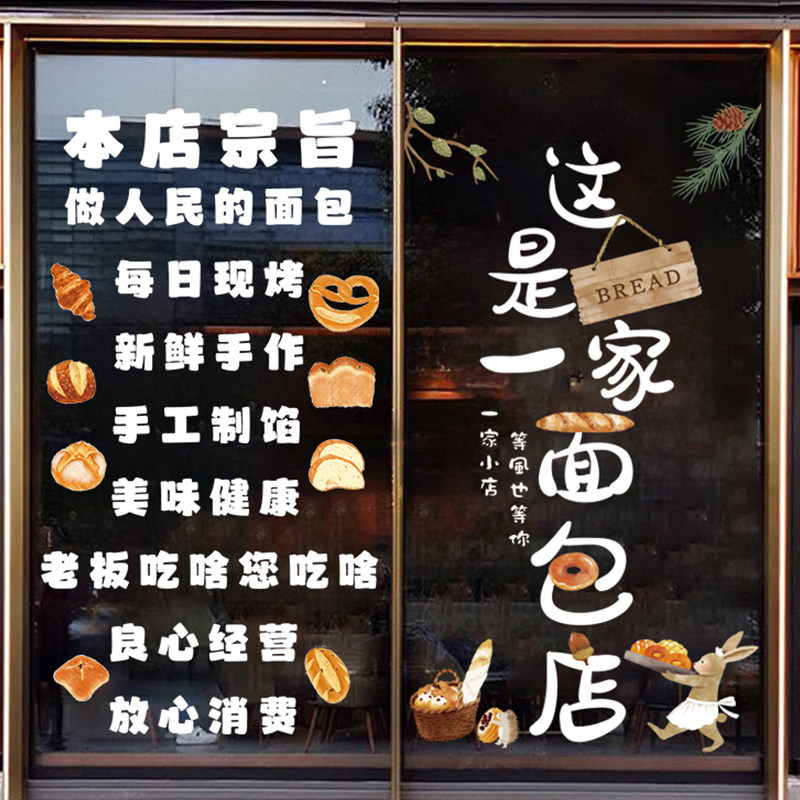 本店宗旨
做人民的面包
每日现烤
新鲜手作
手工制馅
美味健康
老板吃啥您吃啥
良心经营
放心消费
这是一家面包店
BREAD
一家小店
等風也等你